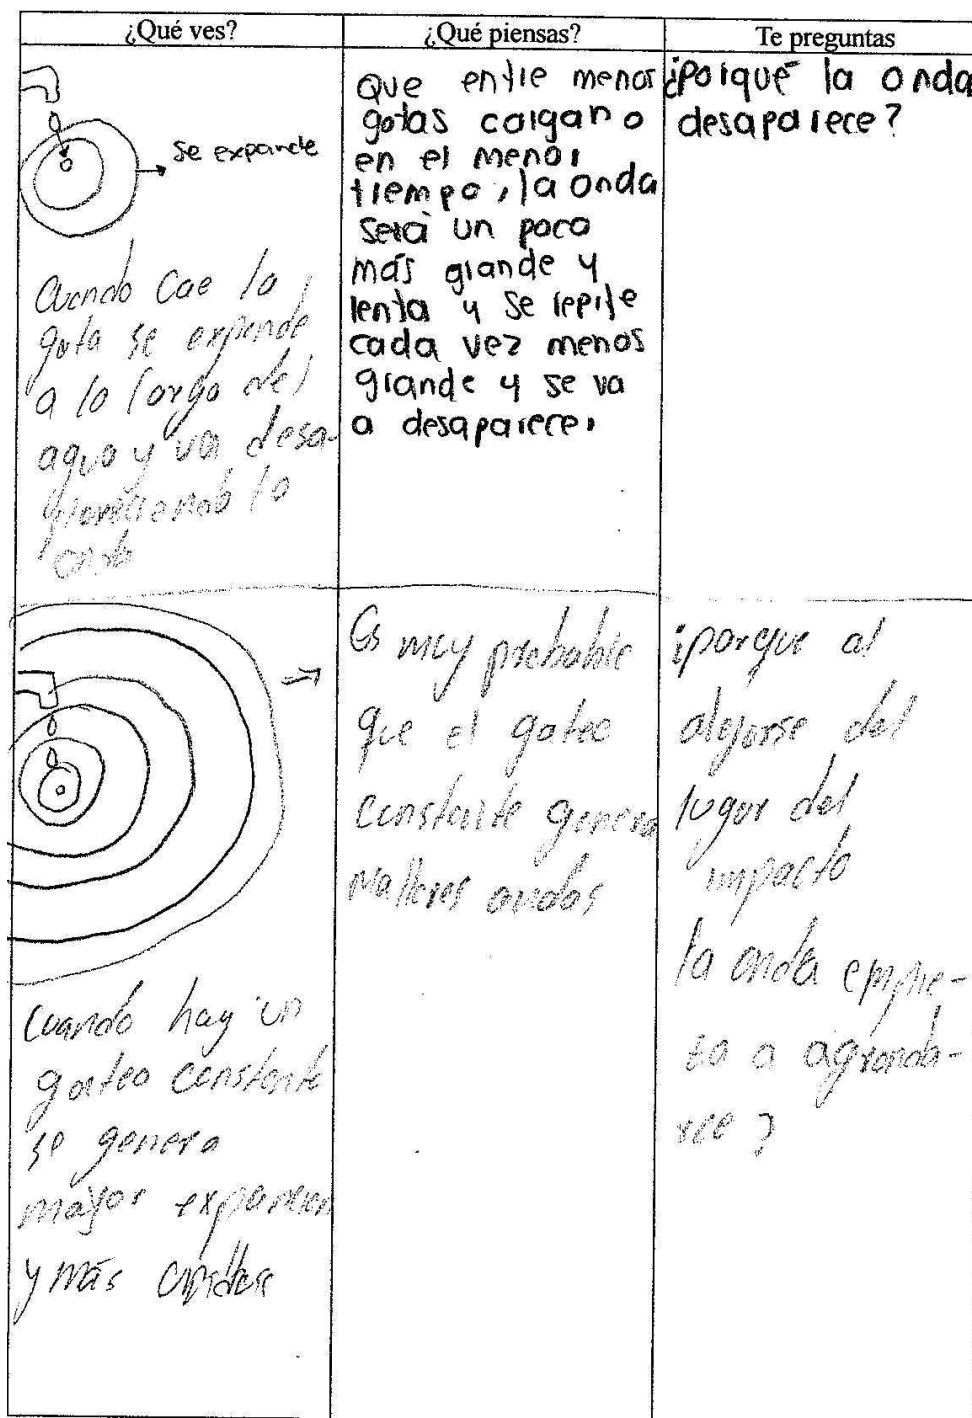 ¿Qué ves?
¿Qué piensas?
Te preguntas
se expande
Cuando cae la
gota se expende
a lo largo del
agua y va desa-
la
onda
Que entre menor
gotas caigan o
en el menor
tiempo, la onda
será un poco
más grande y
lenta y se repite
cada vez menos
grande y se va
a desaparecer
¿Porqué la onda
desaparece?
Cuando hay un
goteo constante
se genera
mayor
y más
Es muy probable
que el goteo
constante genera
ondas
¿porque al
alejarse del
lugar del
impacto
la onda empie-
za a agranda-
rce?